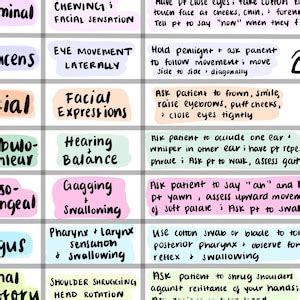 minal
CHEWING ;
FACIAL SENSATION
Have pt close eyes ; take cotton
touch face at cheeks, chin, + forehe
Tell pt to say "now" when they f
ucens
EYE MOVEMENT
LATERALLY
Hold penlight + ask patient
to follow movement ; move
side to side + diagonally
ial
Facial
Expressions
Ask patient to frown, smile,
raise eyebrows, puff cheeks,
+ close eyes tightly
ibulo-
hlear
Hearing
+
Balance
Ask patient to occlude one ear +
whisper in other ear ; have pt repe
phrase ; Ask pt to walk, assess gait
so-
ngeal
Gagging
+
Swallowing
Ask patient to say "an" and
pt yawn, assess upward movem
of soft palate ; Ask pt to swal
gus
Pharynx + larynx
sensation
+ swallowing
Use cotton swab or blade to to
posterior pharynx + observe for
reflex + swallowing
nal
ory
SHOULDER SHRUGGING
HEAD ROTATION
Ask patient to shrug shoulders
against resistance of your hands.